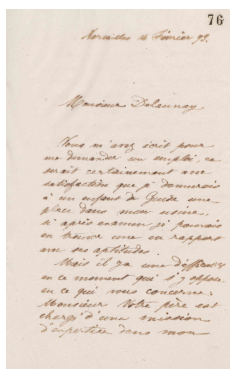 76
Février 93.
Monsieur Delaunay
Vous m'avez écrit pour
me demander un emploi, ce
serait certainement une
satisfaction que je donnerais
à un enfant de Guise une
place dans mon usine,
si après examen je pouvais
en trouver une en rapport
avec ses aptitudes.
Mais il y a une difficulté
en ce moment qui s'y oppose
en ce qui vous concerne.
Monsieur Votre père est
chargé d'une mission
d'expertise dans mon